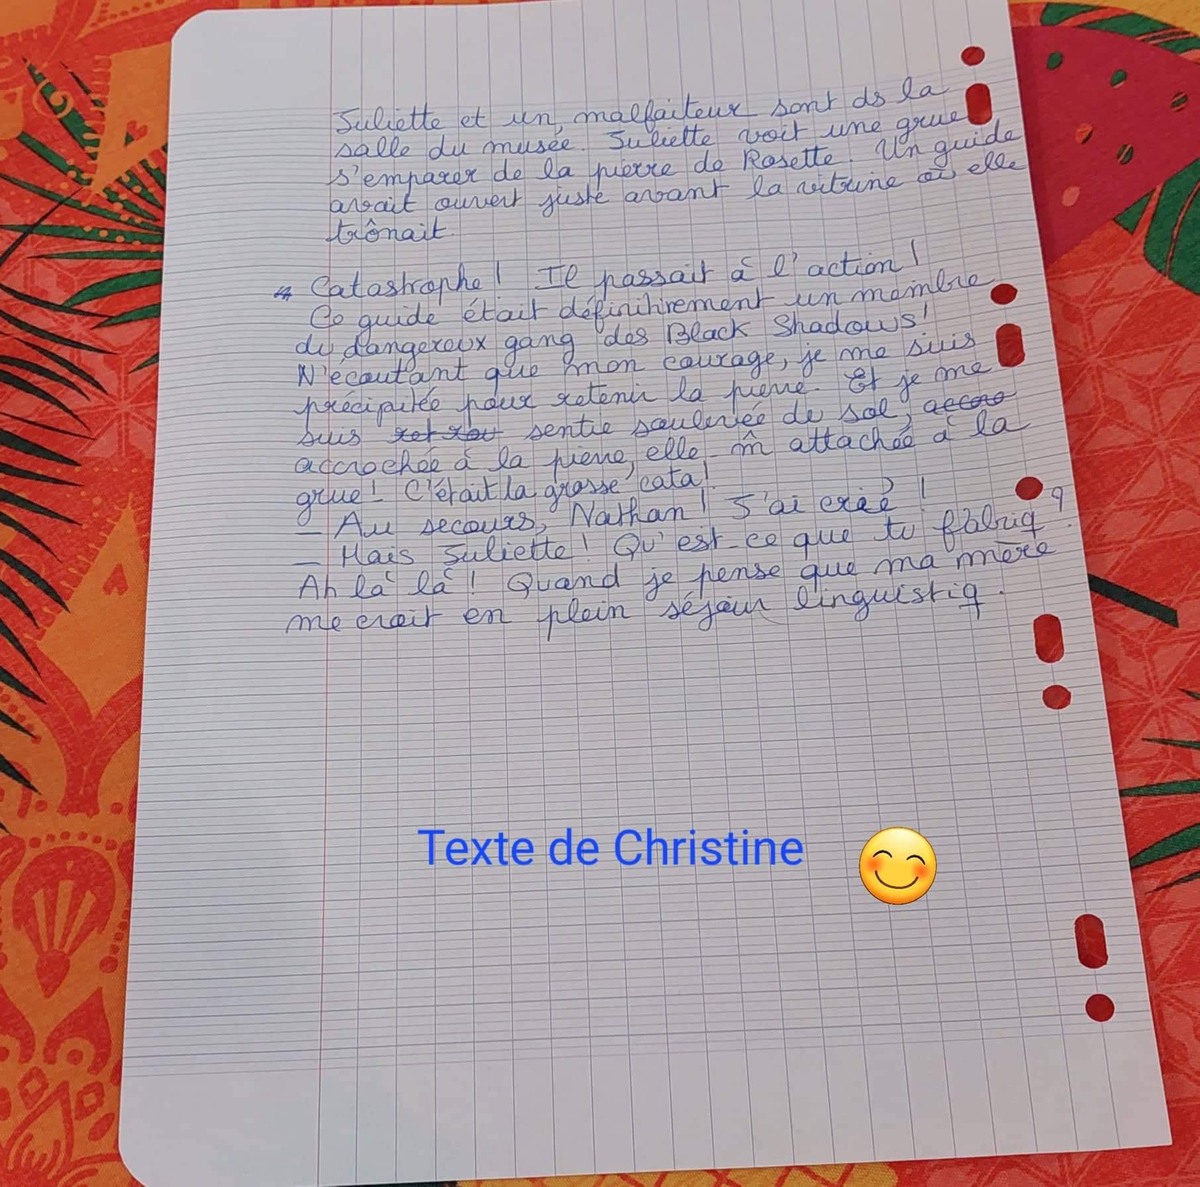 Juliette et un malfaiteur sont ds la
salle du musée. Juliette voit une grue
s'emparer de la pierre de Rosette. Un guide
avait ouvert juste avant la vitrine où elle
trônait.
Catastrophe ! Il passait à l'action !
Ce guide était définitivement un membre
du dangereux gang des Black Shadows !
N'écoutant que mon courage, je me suis
précipitée pour retenir la pierre. Et je me
suis sentie soulevée de sol, accro
accrochée à la pierre, elle-m̂ attachée à la
grue ! C'était la grosse cata !
– Au secours, Nathan ! J'ai crié !
– Mais Juliette ! Qu'est-ce que tu fabriq ?
Ah là là ! Quand je pense que ma mère
me croit en plein séjour linguistiq.
Texte de Christine